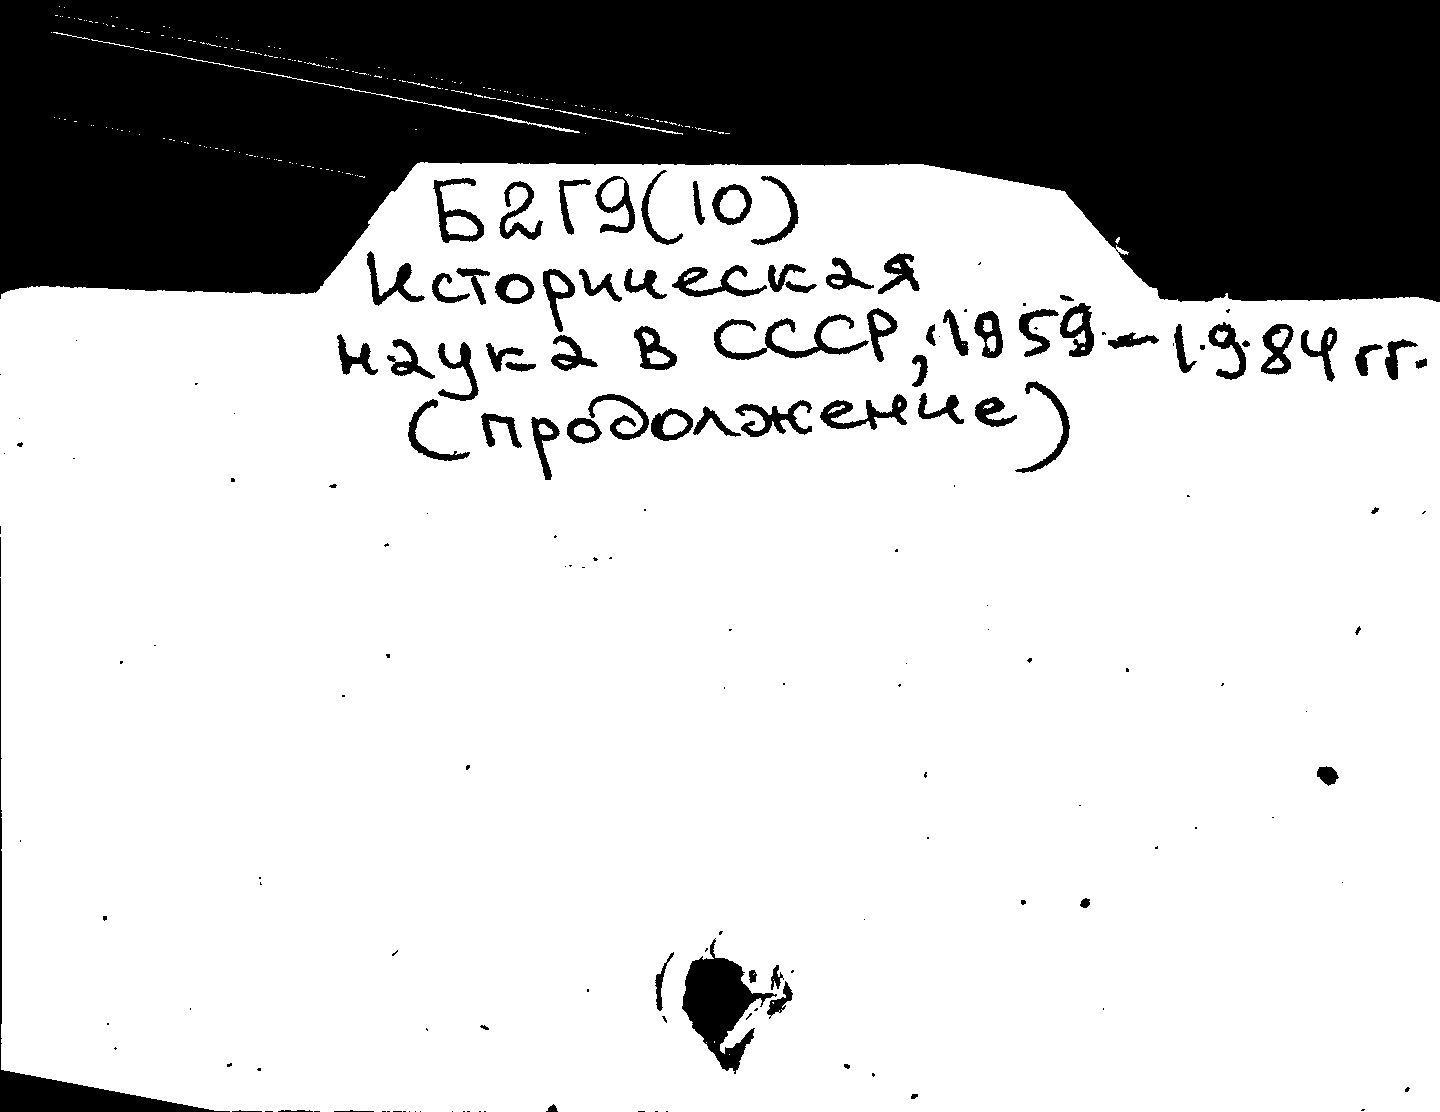 Б2Г9(10)
Историческая
наука в СССР, 1959-1984 гг.
(продолжение)